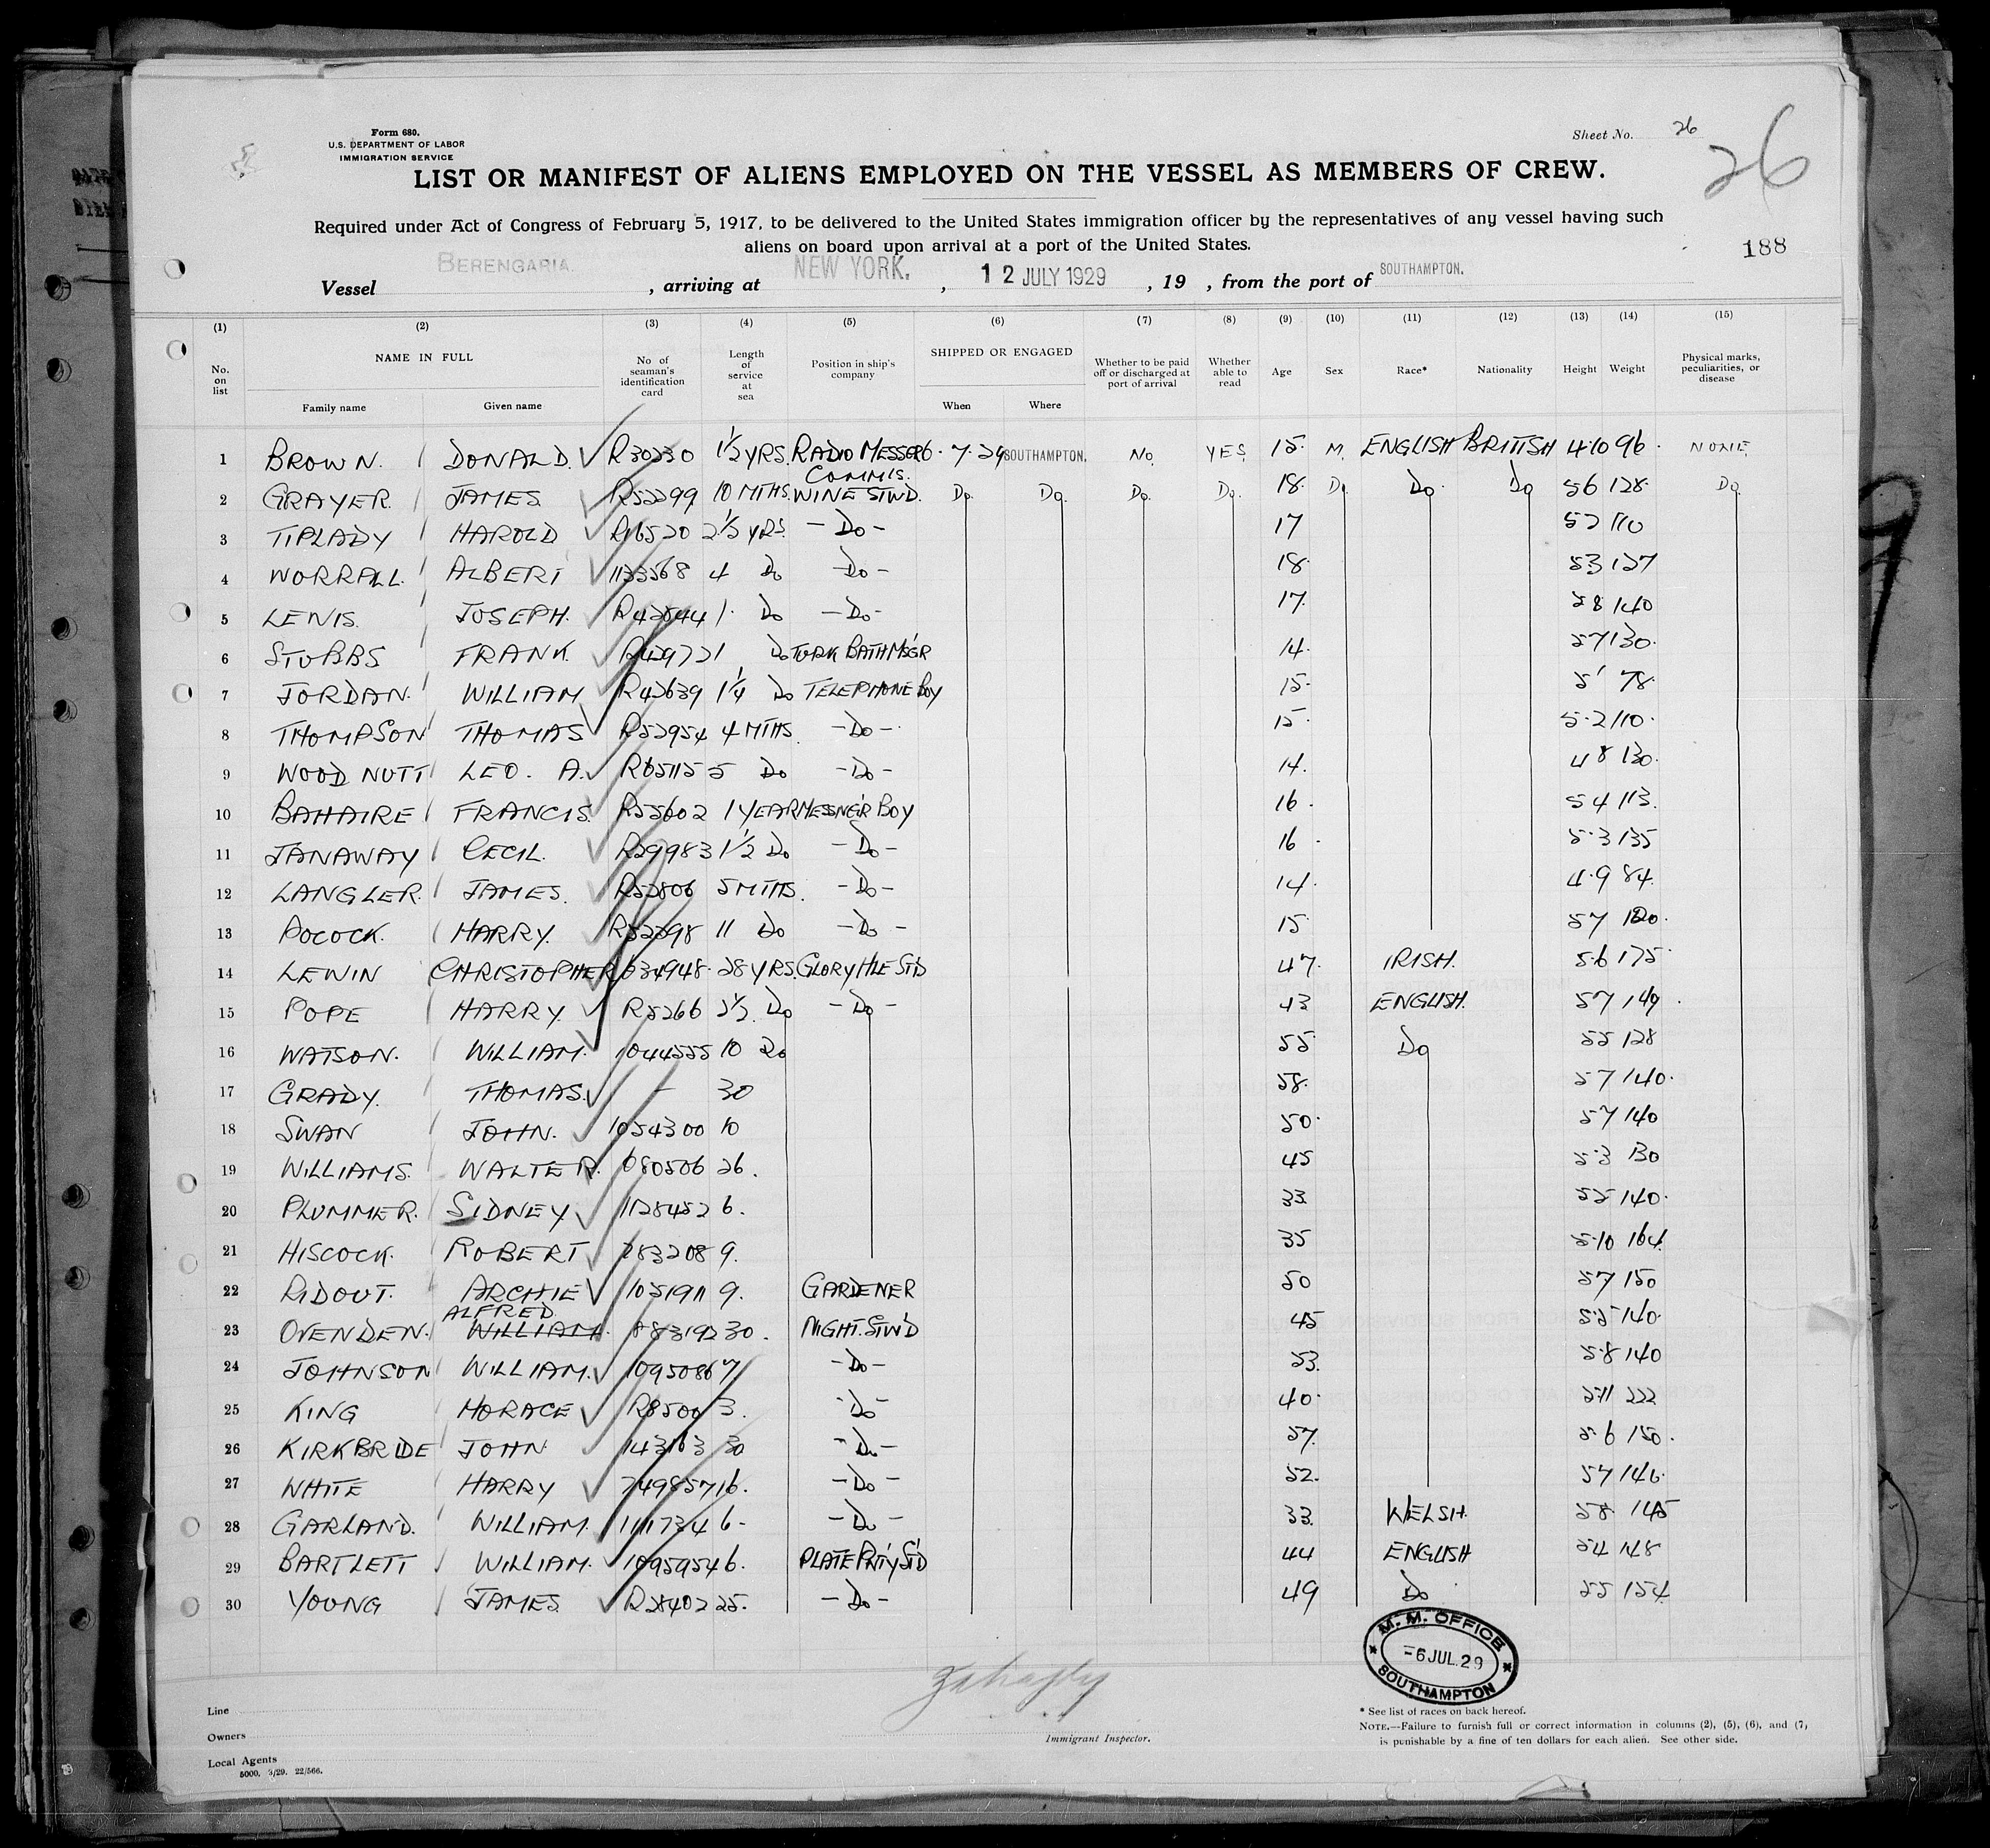 Form 680.
U.S. DEPARTMENT OF LABOR
IMMIGRATION SERVICE
Sheet No. 26
26
LIST OR MANIFEST OF ALIENS EMPLOYED ON THE VESSEL AS MEMBERS OF CREW.
Required under Act of Congress of February 5, 1917, to be delivered to the United States immigration officer by the representatives of any vessel having such
aliens on board upon arrival at a port of the United States.
188
Vessel BERENGARIA. , arriving at NEW YORK. , 12 JULY 1929 , 19 , from the port of SOUTHAMPTON.
(1) (2) (3) (4) (5) (6) (7) (8) (9) (10) (11) (12) (13) (14) (15)
No. on list NAME IN FULL Family name Given name No of seaman's identification card Length of service at sea Position in ship's company SHIPPED OR ENGAGED When Where Whether to be paid off or discharged at port of arrival Whether able to read Age Sex Race* Nationality Height Weight Physical marks, peculiarities, or disease
1 BROWN. DONALD. R30230 1½ YRS. RADIO MESSGR 6.7.29 SOUTHAMPTON. NO. YES 15. M. ENGLISH BRITISH 4.10 96. NONE.
2 GRAYER. JAMES R52299 10 MTHS. COMMIS. WINE STWD. Do. Do. Do. Do. 18. Do Do. Do 56 128. Do
3 TIPLADY HAROLD R16520 2½ YRS. -Do- 17 52 110
4 WORRALL. ALBERT 1133568 4 Do -Do- 18. 53 127
5 LEWIS. JOSEPH. R42844 1. Do -Do- 17. 58 140
6 STUBBS FRANK. R42972 1 Do TURK BATH MSGR 14. 57 130.
7 JORDAN. WILLIAM R42639 1¼ Do TELEPHONE BOY 15. 5' 78.
8 THOMPSON THOMAS R52954 4 MTHS. -Do- 15. 5.2 110.
9 WOODNUTT LEO. A. R65115 5 Do -Do- 14. 48 130.
10 BAHAIRE FRANCIS. R55602 1 YEAR MESSNG'R BOY 16. 54 113.
11 JANAWAY CECIL. R29983 1½ Do -Do- 16. 5.3 135
12 LANGLER. JAMES. R52806 5 MTHS. -Do- 14. 4.9 84.
13 POCOCK. HARRY. R52298 11 Do -Do- 15 57 120.
14 LEWIN CHRISTOPHER 634948. 28 YRS. GLORY HLE ST'D 47. IRISH. 5.6 175.
15 POPE HARRY. R5266 2½. Do -Do- 43 ENGLISH. 57 149.
16 WATSON. WILLIAM. 1044555 10 Do 55 Do 55 128
17 GRADY. THOMAS. - 30 58. 57 140.
18 SWAN JOHN. 1054300 10 50. 57 140
19 WILLIAMS. WALTER. 680506 26. 45 5.3 130
20 PLUMMER. SIDNEY 1128452 6. 33. 55 140.
21 HISCOCK. ROBERT 783208 9. 35 5.10 164.
22 RIDOUT. ARCHIE 1051911 9. GARDENER 50 57 150
23 OVENDEN. ALFRED WILLIAM. 883192 30. NIGHT. STW'D 45 5.5 140.
24 JOHNSON WILLIAM. 1095086 7 -Do- 53. 5.8 140
25 KING HORACE R8500 3. -Do- 40. 5.11 222
26 KIRKBRIDE JOHN 143163 30 -Do- 57. 5.6 150.
27 WHITE HARRY 749857 16. -Do- 52. 57 146.
28 GARLAND. WILLIAM. 1117324 6- -Do- 33. WELSH. 58. 145
29 BARTLETT WILLIAM. 1095954 6. PLATE PNTY ST'D 44 ENGLISH 54 148
30 YOUNG JAMES R28402 25. -Do- 49 Do 55 154
M. M. OFFICE
-6 JUL. 29
SOUTHAMPTON
Line
Owners
Local Agents
5000. 3/29. 22/566.
Immigrant Inspector.
* See list of races on back hereof.
NOTE.—Failure to furnish full or correct information in columns (2), (5), (6), and (7,
is punishable by a fine of ten dollars for each alien. See other side.